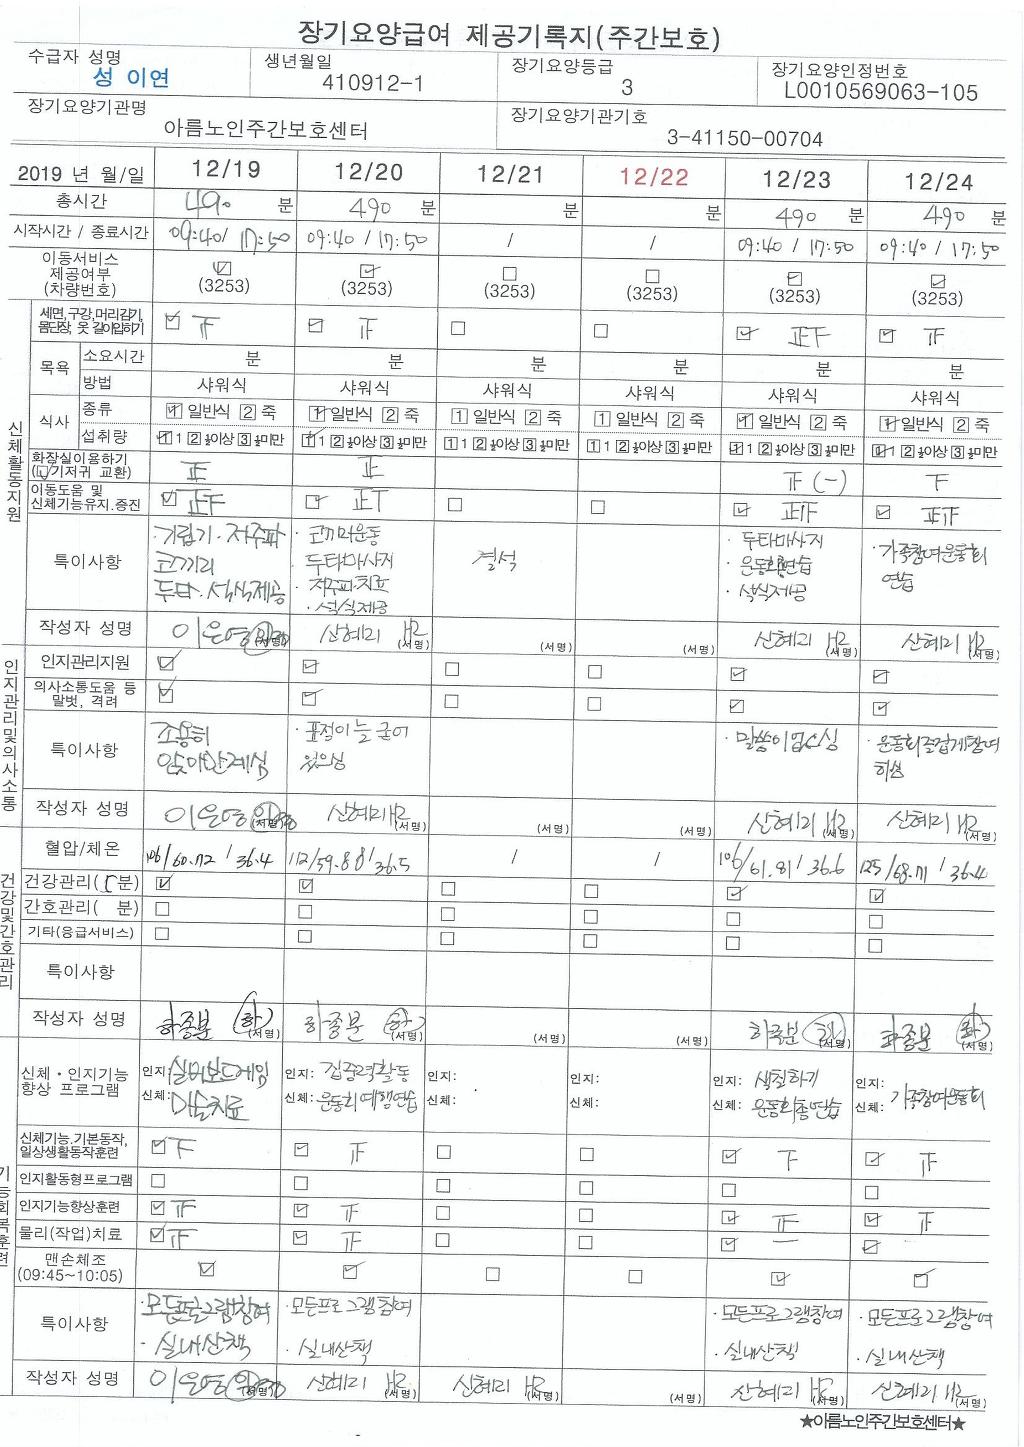 장기요양급여 제공기록지(주간보호)
수급자 성명 생년월일 장기요양등급 장기요양인정번호
성 이연 410912-1 3 L0010569063-105
장기요양기관명 장기요양기관기호
아름노인주간보호센터 3-41150-00704
2019 년 월/일 12/19 12/20 12/21 12/22 12/23 12/24
총시간 490 분 490 분 분 분 490 분 490 분
시작시간 / 종료시간 09:40 / 17:50 09:40 / 17:50 / / 09:40 / 17:50 09:40 / 17:50
이동서비스
제공여부
(차량번호) (3253) (3253) (3253) (3253) (3253) (3253)
신체활동지원
세면,구강,머리감기,
몸단장, 옷 갈아입히기
목욕 소요시간 분 분 분 분 분 분
방법 샤워식 샤워식 샤워식 샤워식 샤워식 샤워식
식사 종류 1 일반식 2 죽 1 일반식 2 죽 1 일반식 2 죽 1 일반식 2 죽 1 일반식 2 죽 1 일반식 2 죽
섭취량 1 1 2 ½이상 3 ½미만 1 1 2 ½이상 3 ½미만 1 1 2 ½이상 3 ½미만 1 1 2 ½이상 3 ½미만 1 1 2 ½이상 3 ½미만 1 1 2 ½이상 3 ½미만
화장실이용하기
(기저귀 교환) 正 正 (-)
이동도움 및
신체기능유지.증진
특이사항
코끼리
두타·석식제공
코끼리운동
두타마사지
· 석식제공
결석
· 두타마사지
· 운동회연습
· 석식제공
· 가족참여운동회
연습
작성자 성명 이은영 (서명) 신혜리 (서명) (서명) (서명) 신혜리 (서명) 신혜리 (서명)
인지관리및의사소통
인지관리지원
의사소통도움 등
말벗, 격려
특이사항
조용히
앉아만계심
· 표정이 늘 굳어
있으심
· 말씀이 없으심
· 운동회즐겁게참여
하심
작성자 성명 이은영 (서명) 신혜리 (서명) (서명) (서명) 신혜리 (서명) 신혜리 (서명)
건강및간호관리
혈압/체온 106/60.72 / 36.4 112/59.88 / 36.5 / / 106/61.81 / 36.6 125/68.71 / 36.4
건강관리(5분)
간호관리( 분)
기타(응급서비스)
특이사항
작성자 성명 하종분 (서명) 하종분 (서명) (서명) (서명) 하종분 (서명) 하종분 (서명)
기능회복훈련
신체·인지기능
향상 프로그램
인지: 실버보드게임
신체: 미술치료
인지: 집중력활동
신체: 운동회예행연습
인지:
신체:
인지:
신체:
인지: 색칠하기
신체: 운동회총연습
인지:
신체: 가족참여운동회
신체기능.기본동작,
일상생활동작훈련
인지활동형프로그램
인지기능향상훈련
물리(작업)치료
맨손체조
(09:45~10:05)
특이사항
· 모든프로그램참여 · 모든프로그램참여 · 모든프로그램참여 · 모든프로그램참여
· 실내산책 · 실내산책 · 실내산책 · 실내산책
작성자 성명 이은영 (서명) 신혜리 (서명) 신혜리 (서명) (서명) 신혜리 (서명) 신혜리 (서명)
★아름노인주간보호센터★